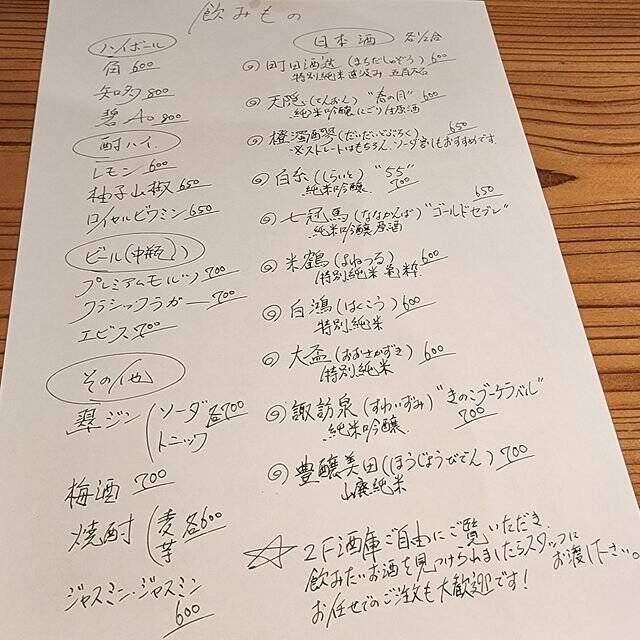 飲みもの
ハイボール
角 600
知多 800
碧Ao 900
酎ハイ
レモン 600
柚子山椒 650
ロイヤルビワミン 650
ビール(中瓶)
プレミアムモルツ 700
クラシックラガー 700
エビス 700
その他
翠ジン(ソーダ 各700
トニック
梅酒 700
焼酎(麦 各600
芋
ジャスミン・ジャスミン
600
日本酒 各1/2合
町田酒造(まちだしゅぞう) 600
特別純米 直汲み 五百万石
天隠(てんおん) "春の月" 600
純米吟醸 にごり 生原酒
橙濁醪(だいだいどぶろく) 650
※ストレートはもちろん、ソーダ割もおすすめです。
白糸(しらいと) "55"
純米吟醸 700
七冠馬(ななかんば) "ゴールドセブン" 650
純米吟醸原酒
米鶴(よねつる) 600
特別純米
白鴻(はくこう) 600
特別純米
大盃(おおさかずき) 600
特別純米
諏訪泉(すわいずみ) "きのこブーケラベル"
純米吟醸 700
豊醸美田(ほうじょうびでん) 700
山廃純米
☆ 2F酒庫ご自由にご覧いただき、
飲みたいお酒を見つけられましたらスタッフに
お渡し下さい。
お任せでのご注文も大歓迎です!